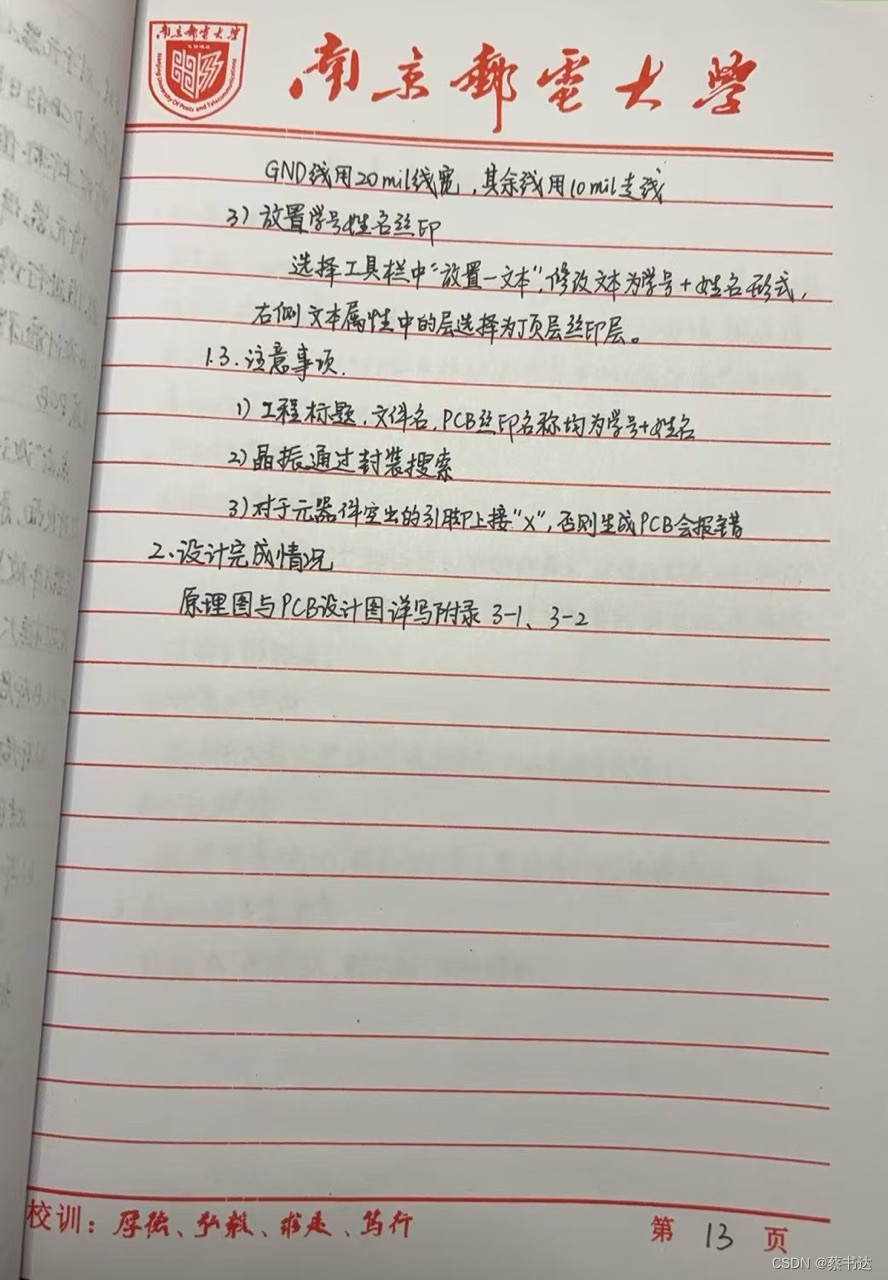 南京郵電大學
Nanjing University Of Posts and Telecommunications
南京郵電大學
GND线用20mil线宽,其余线用10mil走线
3) 放置学号姓名丝印
选择工具栏中"放置—文本",修改文本为学号+姓名形式,
右侧文本属性中的层选择为顶层丝印层。
1.3.注意事项.
1) 工程标题.文件名.PCB丝印名称均为学号+姓名
2) 晶振通过封装搜索
3) 对于元器件空出的引脚上接"X",否则生成PCB会报错
2.设计完成情况
原理图与PCB设计图详写附录 3-1、3-2
校训:厚德、弘毅、求是、笃行
第 13 页
CSDN @蔡书达